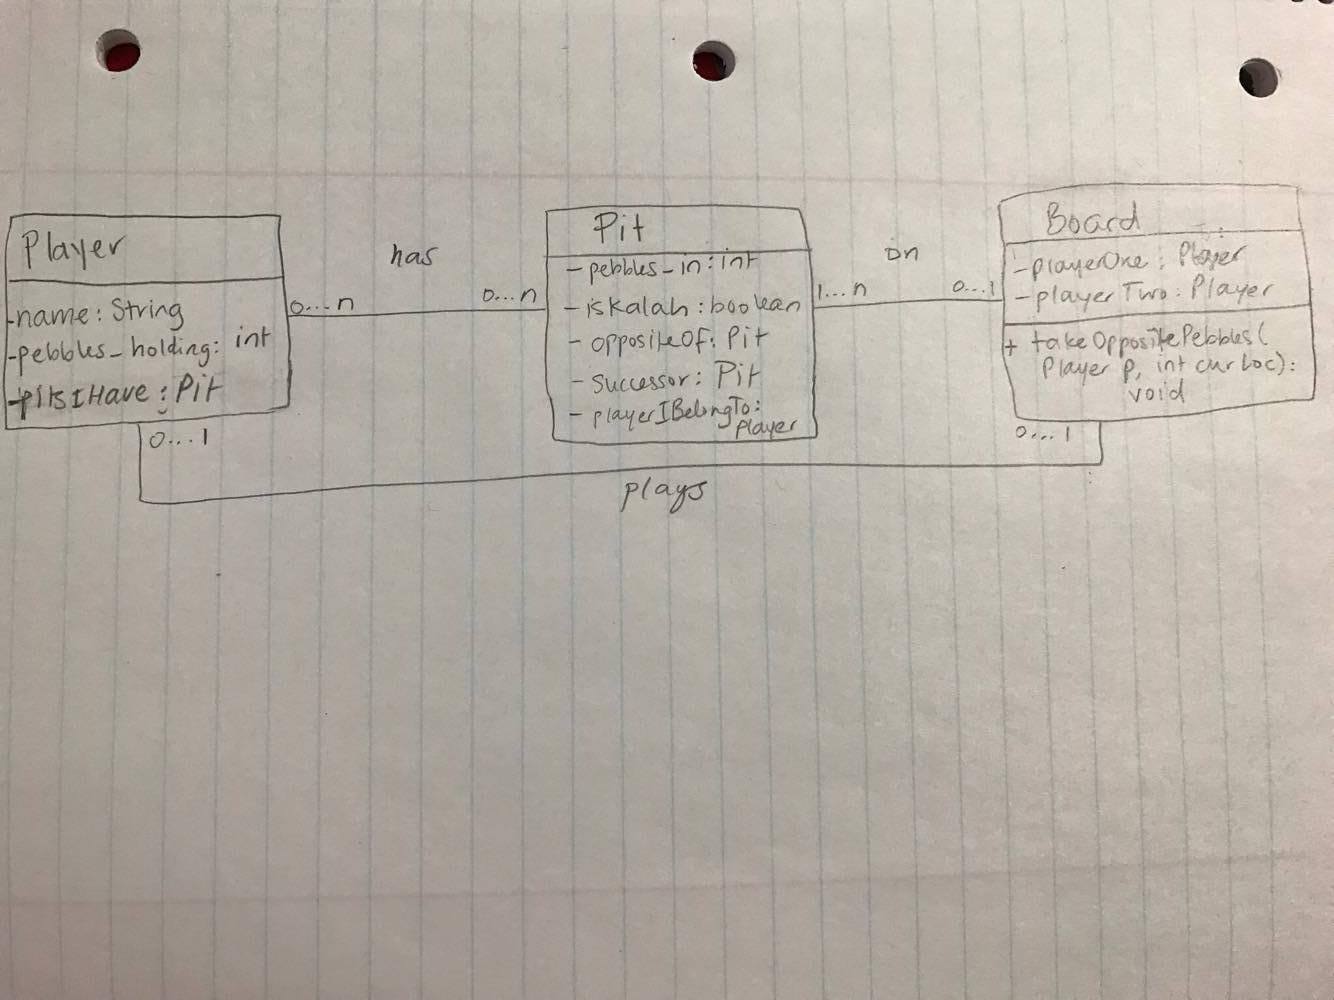 Player
-name: String
-pebbles_holding: int
-pitsIHave: Pit
has
0...n
0...n
Pit
-pebbles_in: int
-isKalah: boolean
-oppositeOf: Pit
-Successor: Pit
-playerIBelongTo:
player
on
1...n
0...1
Board
-playerOne: Player
-playerTwo: Player
+ takeOppositePebbles(
Player p, int curLoc):
void
0...1
0...1
plays